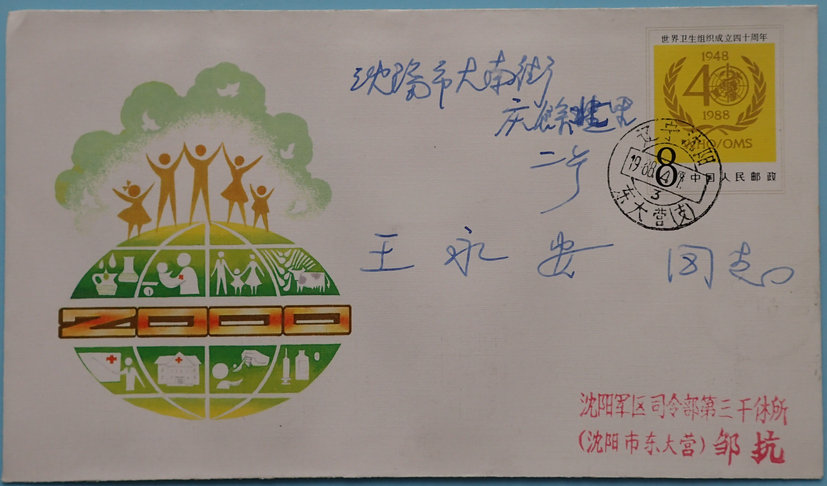 世界卫生组织成立四十周年
1948
40
1988
WHO/OMS
8
中国人民邮政
辽宁沈阳
3
东大营(支)
沈阳市大南街
二号
王永安 同志
2000
沈阳军区司令部第三干休所
(沈阳市东大营) 邹抗